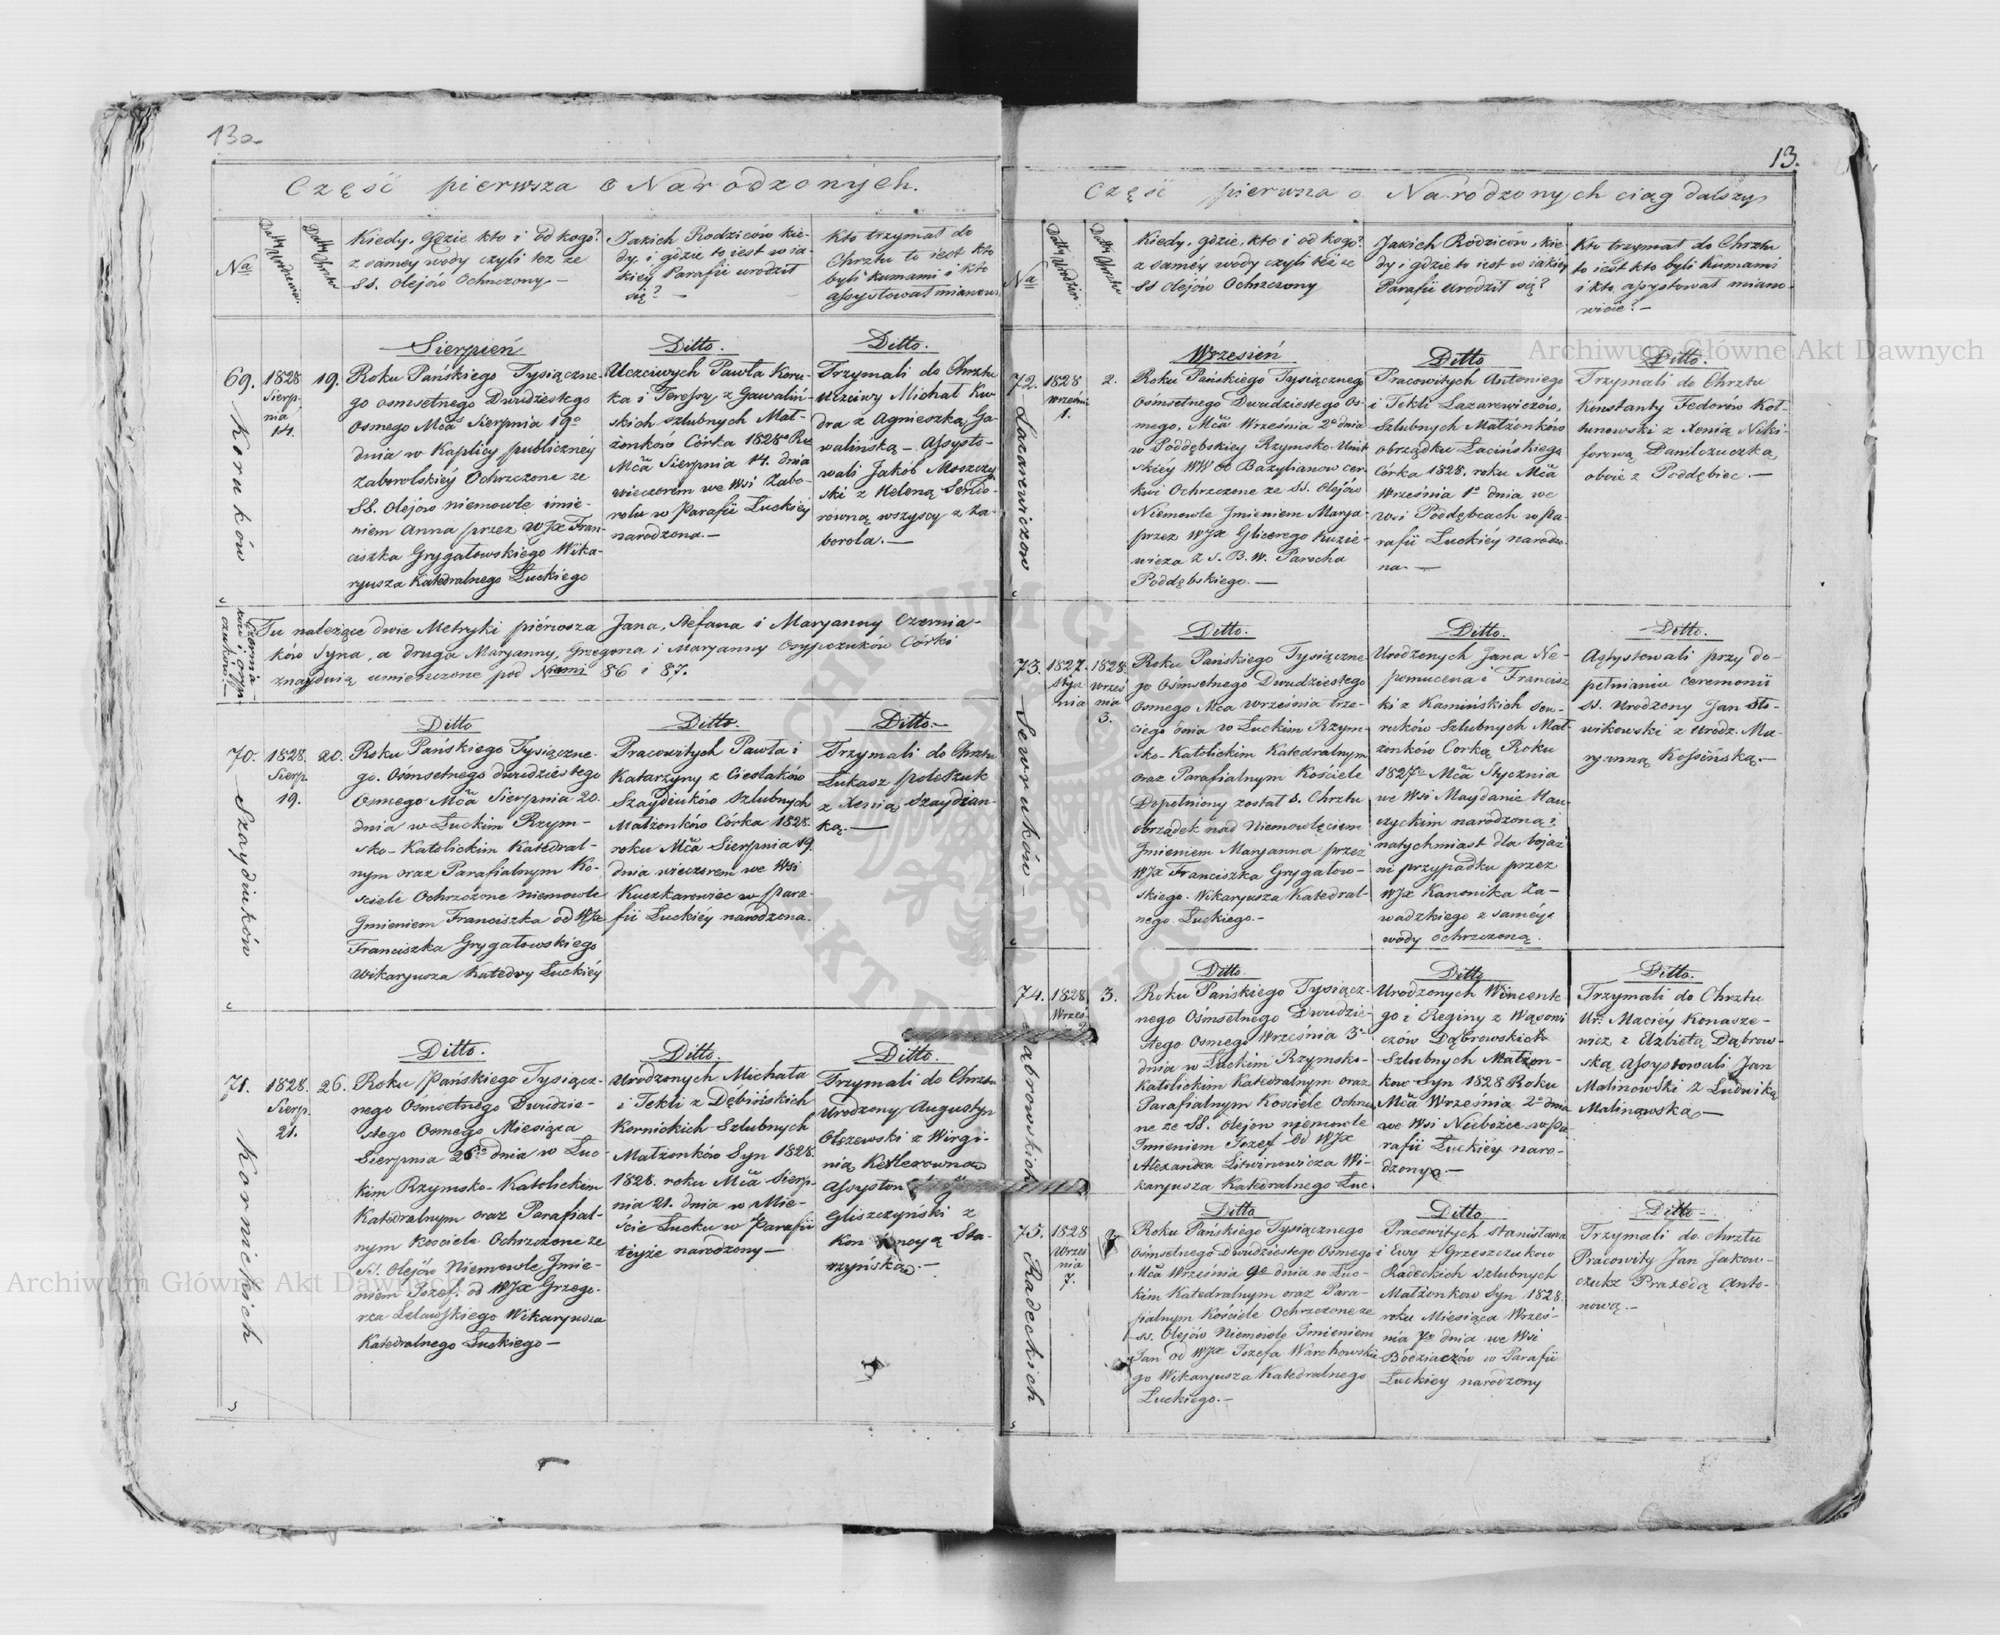 130.
Część pierwsza o Narodzonych.
Na
Datty Urodzenia
Datty Chrztu
Kiedy, Gdzie kto i od kogo?
z saméy wody czyli też ze
SS. Olejów Ochrzczony —
Jakich Rodziców kie-
dy i gdzie to iest w ia-
kiey Parafii urodził
się? —
Kto trzymał do
Chrztu to iest kto
byli kumami i kto
assystował mianow
Sierpień
69.
1828
Sierp-
nia
14.
19.
Koruków
Roku Pańskiego Tysiączne-
go osmsetnego Dwudziestego
Osmego Mča Sierpnia 19o
dnia w Kaplicy publicznéy
Zaborolskiéy Ochrzczone ze
SS. Olejów niemowle imie-
niem Anna przez WJX Fran-
ciszka Grygałowskiego Wika-
ryusza Katedralnego Łuckiego
Ditto.
Uczciwych Pawła Koru-
ka i Teressy z Gawaliń-
skich szlubnych Mał-
żonków Córka 1828o Ru
Mča Sierpnia 14. dnia
wieczorem we Wsi Zabo-
rolu w Parafii Łuckiey
narodzona. —
Ditto.
Trzymali do Chrztu
Uczciwy Michał Ku-
dra z Agnieszką Ga-
walińską — Assysto-
wali Jakób Moszczy
ski z Heleną Sendo-
rowną wszyscy z Za-
borola. —
Czernia-
ków i Osyp-
czuków. —
Tu należące dwie Metryki piérwsza Jana, Stefana i Maryanny Czernia-
ków Syna, a druga Maryanny, Grzegorza i Maryanny Osypczuków Córki
znaydują umieszczone pod Nrami 86 i 87.
70.
1828.
Sierp.
19.
20.
Szaydiuków
Ditto
Roku Pańskiego Tysiączne-
go. Ośmsetnego dwudziestego
Osmego Mča Sierpnia 20.
dnia w Łuckim Rzym-
sko-Katolickim Katedral-
nym oraz Parafialnym Ko-
sciele Ochrzczone niemowle
Jmieniem Franciszka od WJX
Franciszka Grygałowskiego
Wikaryusza Katedry Łuckiéy
Ditto.
Pracowitych Pawła i
Katarzyny z Cieslaków
Szaydiuków szlubnych
Małżonków Córka 1828.
roku Mča Sierpnia 19.
dnia wieczorem we Wsi
Kuczkarowiec w para-
fii Łuckiéy narodzona.
Ditto. —
Trzymali do Chrztu
Łukasz poleszuk
z Xenią Szaydian-
ką. —
71.
1828.
Sierp.
21.
26.
Kornickich
Ditto.
Roku Pańskiego Tysiącz-
nego Ośmsetnego Dwudzie-
stego Osmego Miesiąca
Sierpnia 26o dnia w Łuc-
kim Rzymsko-Katolickim
Katedralnym oraz Parafial-
nym Kosciele Ochrzczone ze
SS. Olejów Niemowle Jmie-
niem Jozef. od WJX Grzego-
rza Wikaryusza
Katedralnego Łuckiego —
Ditto.
Urodzonych Michała
i Tekli z Dębińskich
Kornickich Szlubnych
Małżonków Syn 1828.
1828. roku Mča Sierp-
nia 21. dnia w Mie-
ście Łucku w Parafii
teyże narodzony —
Ditto.
Trzymali do Chrztu
Urodzony Augustyn
Olszewski z Wirgi-
nią Ketlerowną
Gliszczyński z
Sta-
rzyńską. —
13.
Część pierwsza o Narodzonych ciąg dalszy
Na
Datty Urodzin
Datty Chrztu
Kiedy, gdzie, kto i od kogo?
z saméy wody czyli też ze
SS olejów Ochrzczony
Jakich Rodziców, kie-
dy i gdzie to iest w iakiey
Parafii Urodził się?
Kto trzymał do Chrztu
to iest kto byli Kumami
i kto assystował miano-
wicie? —
72.
1828
Wrześnie
1.
2.
Łazarewiczow
Wrzesień
Roku Pańskiego Tysiącznego
Ośmsetnego Dwudziestego Os-
mego, Mča Września 2o dnia
w Poddębskiey Rzymsko-Unit
skiéy WW OO Bazylianow cer-
kwi Ochrzczone ze SS. Olejów
Niemowle Jmieniem Marya-
przez WJX Glicerego Kuzie-
wicza Z. S. B. W. Parocha
Poddębskiego. —
Ditto
Pracowitych Antoniego
i Tekli Łazarewiczów,
Szlubnych Małżonków
obrządku Łacińskiego
Córka 1828. roku Mča
Września 1o dnia we
wsi Poddębcach w Pa-
rafii Łuckiéy narodzo-
na. —
Ditto.
Trzymali do Chrztu
Konstanty Fedorów Koł-
tunowski z Xenią Niki-
forową Danilczuczką,
oboie z Poddębiec. —
73.
1827.
Stycz
nia
1828.
Wrześ
nia
3.
Sewruków
Ditto.
Roku Pańskiego Tysiączne-
go Ośmsetnego Dwudziestego
Osmego Mča Września trze-
ciego dnia w Łuckim Rzym-
sko-Katolickim Katedralnym
oraz Parafialnym Kościele
Dopełniony został S. Chrztu
obrządek nad Niemowlęciem
Jmieniem Maryanna przez
WJX Franciszka Grygałow-
skiego. Wikaryusza Katedral-
nego Łuckiego. —
Ditto.
Urodzonych Jana Ne-
pomucena i Francisz
ki z Kamińskich Sew-
ruków Szlubnych Mał
żonków Corką Roku
1827o Mča Stycznia
we Wsi Maydanie Hau-
czyckim narodzoną i
natychmiast dla bojaź
ni przypadku przez
WJX Kanonika Za-
wadzkiego z saméy
wody ochrzczoną.
Ditto.
Assystowali przy do-
pełnianiu ceremonii
SS. Urodzony Jan Sło-
wikowski z Urodz. Ma-
ryanną Kossińską. —
74.
1828
Wrześ
2
3.
Dąbrowskich
Ditto
Roku Pańskiego Tysiącz-
nego Ośmsetnego Dwudzie-
stego Osmego Września 3o
dnia w Łuckim Rzymsko-
Katolickim Katedralnym oraz
Parafialnym Kosciele Ochrzczo
ne ze SS. Olejow niemowle
Jmieniem Jozef Od WJX
Alexandra Litwinowicza Wi-
karyusza Katedralnego Łuc.
Ditto
Urodzonych Wincente
go i Reginy z Wąsowi
czów Dąbrowskich
Szlubnych Małżon-
kow Syn 1828 Roku
Mča Września 2o dnia
we Wsi Niebożce w Pa
rafii Łuckiey naro-
dzony. —
Ditto.
Trzymali do Chrztu
Ur: Maciéy Konasze-
wicz z Elżbietą Dąbrow-
ską Assystowali Jan
Malinowski z Ludwiką
Malinowską —
75.
1828
Wrześ
nia
7.
9
Radeckich
Ditto
Roku Pańskiego Tysiącznego
Ośmsetnego Dwudziestego Osmego
Mča Września 9o dnia w Łuc-
kim Katedralnym oraz Para-
fialnym Kościele Ochrzczone ze
SS. Olejów Niemowle Jmieniem
Jan od WJX Jozefa Warchowskie
go Wikaryusza Katedralnego
Łuckiego. —
Ditto
Pracowitych Stanisława
i Ewy z Grzeszczukow
Radeckich szlubnych
Małżonkow Syn 1828
roku Miesiąca Wrześ-
nia 7o dnia we Wsi
Bodziaczów w Parafii
Łuckiey narodzony
Ditto —
Trzymali do chrztu
Pracowity Jan Jakow-
czukz Praxedą Anto-
nową. —
Archiwum Główne Akt Dawnych
Archiwum Główne Akt Dawnych
ARCHIWUM GŁÓWNE
AKT DAWNYCH